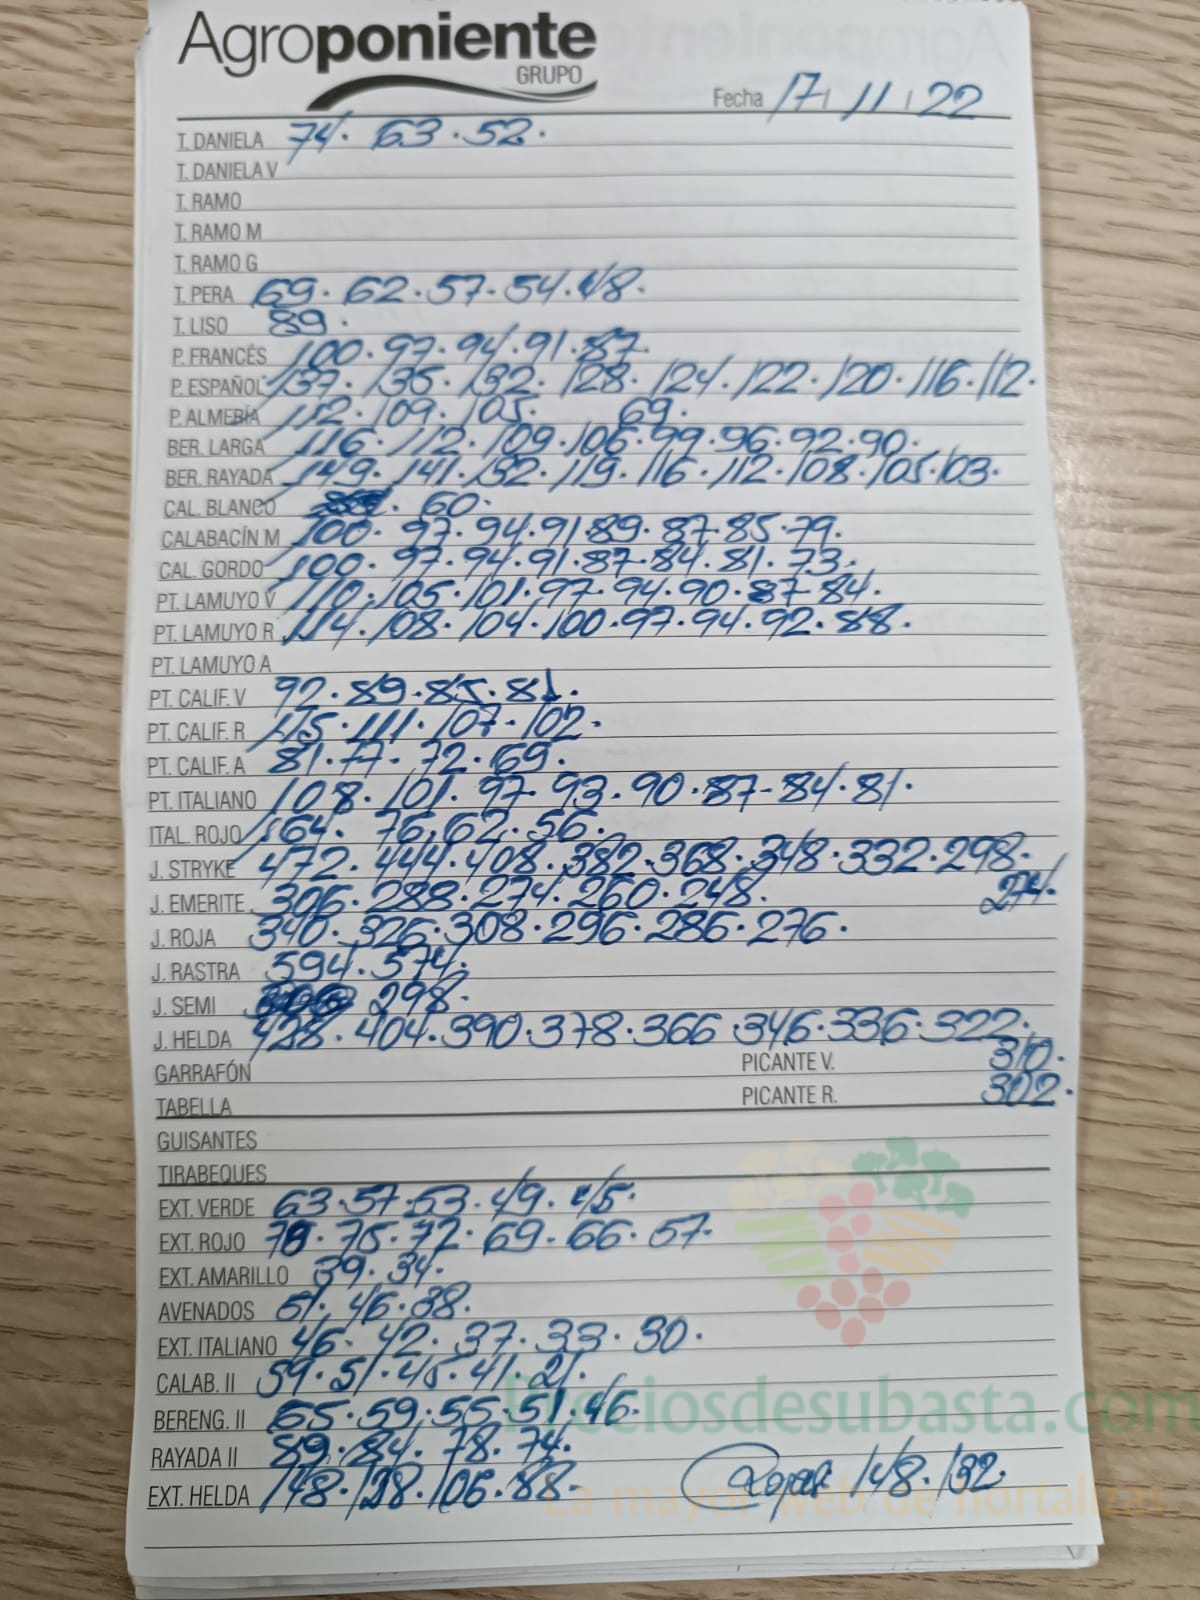 Agroponiente
GRUPO
Fecha 17 / 11 / 22
T. DANIELA 74. 63. 52.
T. DANIELA V
T. RAMO
T. RAMO M
T. RAMO G
T. PERA 69. 62. 57. 54. 48.
T. LISO 89.
P. FRANCÉS 100. 97. 94. 91. 87
P. ESPAÑOL 137. 135. 132. 128. 124. 122. 120. 116. 112.
P. ALMERÍA 112. 109. 105. 69.
BER. LARGA 116. 112. 109. 106. 99. 96. 92. 90.
BER. RAYADA 149. 141. 132. 119. 116. 112. 108. 105. 103.
CAL. BLANCO . 60.
CALABACÍN M 100. 97. 94. 91. 89. 87. 85. 79.
CAL. GORDO 100. 97. 94. 91. 87. 84. 81. 73.
PT. LAMUYO V 110. 105. 101. 97. 94. 90. 87. 84.
PT. LAMUYO R 114. 108. 104. 100. 97. 94. 92. 88.
PT. LAMUYO A
PT. CALIF. V 92. 89. 85. 81.
PT. CALIF. R 115. 111. 107. 102.
PT. CALIF. A 81. 77. 72. 69.
PT. ITALIANO 108. 101. 97. 93. 90. 87. 84. 81.
ITAL. ROJO 164. 76. 62. 56.
J. STRYKE 472. 444. 408. 382. 368. 348. 332. 298.
274.
J. EMERITE 306. 288. 274. 260. 248.
J. ROJA 340. 326. 308. 296. 286. 276.
J. RASTRA 594. 574.
J. SEMI 298.
J. HELDA 428. 404. 390. 378. 366. 346. 336. 322.
GARRAFÓN PICANTE V. 310.
TABELLA PICANTE R. 302.
GUISANTES
TIRABEQUES
EXT. VERDE 63. 57. 53. 49. 45.
EXT. ROJO 78. 75. 72. 69. 66. 57.
EXT. AMARILLO 39. 34.
AVENADOS 51. 46. 38.
EXT. ITALIANO 46. 42. 37. 33. 30.
CALAB. II 59. 51. 45. 41. 21.
Preciosdesubasta.com
BERENG. II 65. 59. 55. 51. 46.
RAYADA II 89. 84. 78. 74.
EXT. HELDA 148. 128. 106. 88. 148. 132.
La mayor web de hortalizas